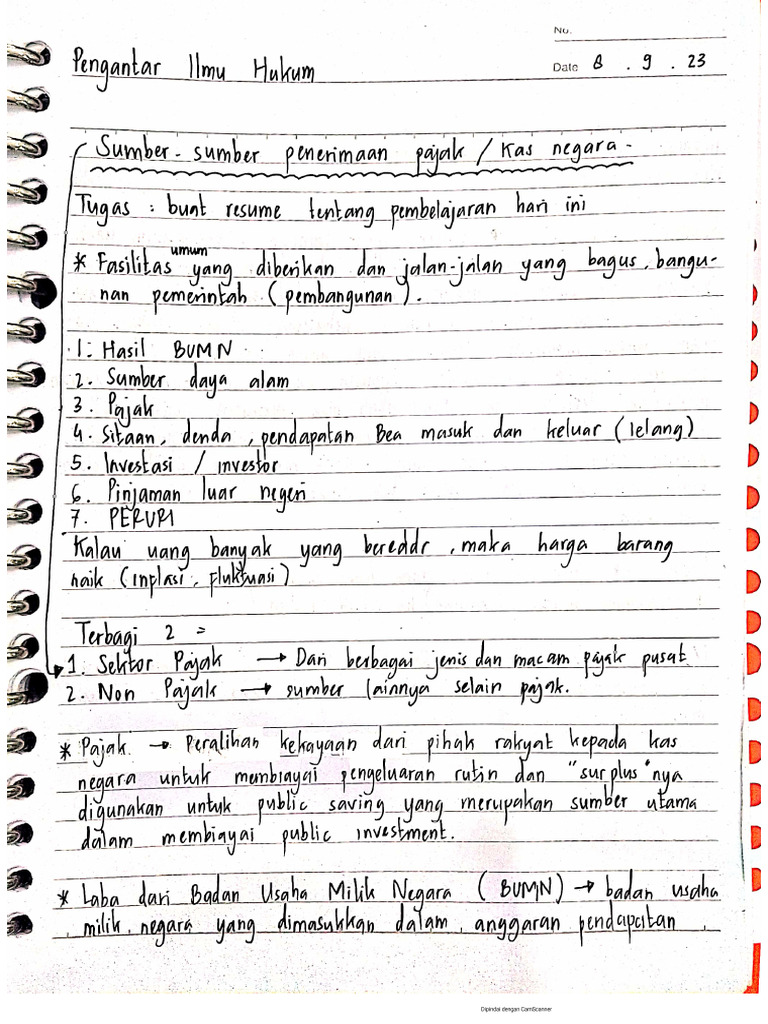 No.
Pengantar Ilmu Hukum
Date 8 . 9 . 23
Sumber-sumber penerimaan pajak / kas negara -
Tugas : buat resume tentang pembelajaran hari ini
* Fasilitas umum yang diberikan dan jalan-jalan yang bagus, bangu-
nan pemerintah (pembangunan).
1. Hasil BUMN
2. Sumber daya alam
3. Pajak
4. Sitaan, denda, pendapatan Bea masuk dan keluar (lelang)
5. Investasi / investor
6. Pinjaman luar negeri
7. PERURI
Kalau uang banyak yang beredar, maka harga barang
naik (inplasi, fluktuasi)
Terbagi 2 =
1. Sektor Pajak → Dari berbagai jenis dan macam pajak pusat
2. Non Pajak → sumber lainnya selain pajak.
* Pajak → Peralihan kekayaan dari pihak rakyat kepada kas
negara untuk membiayai pengeluaran rutin dan "surplus"nya
digunakan untuk public saving yang merupakan sumber utama
dalam membiayai public investment.
* Laba dari Badan Usaha Milik Negara (BUMN) → badan usaha
milik negara yang dimasukkan dalam anggaran pendapatan
Dipindai dengan CamScanner